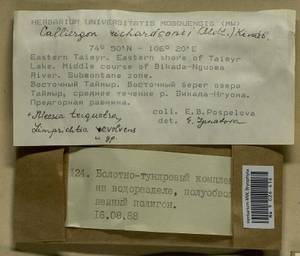 HERBARIUM UNIVERSITATIS MOSQUENSIS (MW)
Calliergon richardsonii (Mitt.) Kindb.
74° 50'N - 106° 20'E
Eastern Taimyr. Eastern shore of Taimyr
Lake. Middle course of Bikada-Nguoma
River. Submontane zone.
Восточный Таймыр. Восточный берег озера
Таймыр, среднее течение р. Бикада-Нгуома.
Предгорная равнина.
Meesia triquetra,
coll. E.B. Pospelova
Limprichtia revolvens
det. E. Ignatova
и др.
124. Болотно-тундровый комплекс
на водоразделе,
полигон.
16.08.88